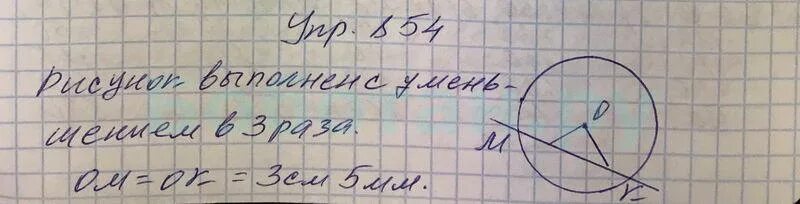 Упр. 854
Рисунок выполнен с умень-
шением в 3 раза.
ОМ = ОК = 3 см 5 мм.
О
М
К